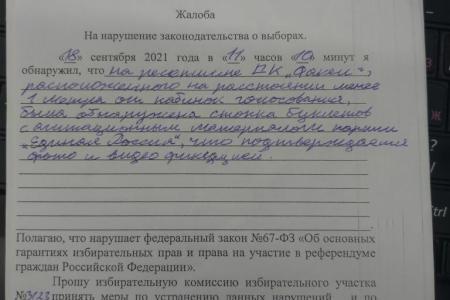 Жалоба
На нарушение законодательства о выборах.
«18» сентября 2021 года в «11» часов «10» минут я
обнаружил, что на ресепшине ДК „Факел",
расположенного на расстоянии менее
1 метра от кабинок голосования,
была обнаружена стопка буклетов
с агитационным материалом партии
„Единая Россия", что подтверждается
фото и видео фиксацией.
Полагаю, что нарушает федеральный закон №67-ФЗ «Об основных
гарантиях избирательных прав и права на участие в референдуме
граждан Российской Федерации».
Прошу избирательную комиссию избирательного участка
№3123 принять меры по устранению данных нарушений и
Ctrl